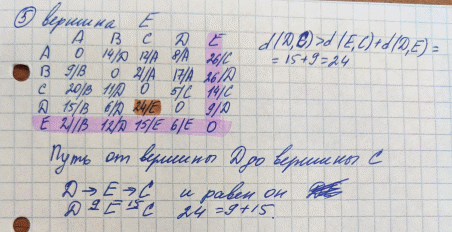 ⑤ вершина E
A B C D E
A 0 14/D 14/A 8/A 26/C
B 9/B 0 21/A 17/A 26/D
C 20/B 11/D 0 5/C 14/C
D 15/B 6/D 24/E 0 9/D
E 21/B 12/D 15/E 6/E 0
d(D,C)>d(E,C)+d(D,E)=
=15+9=24
Путь от вершины D до вершины C
D → E → C и равен он
D 9 E 15 C 24=9+15.